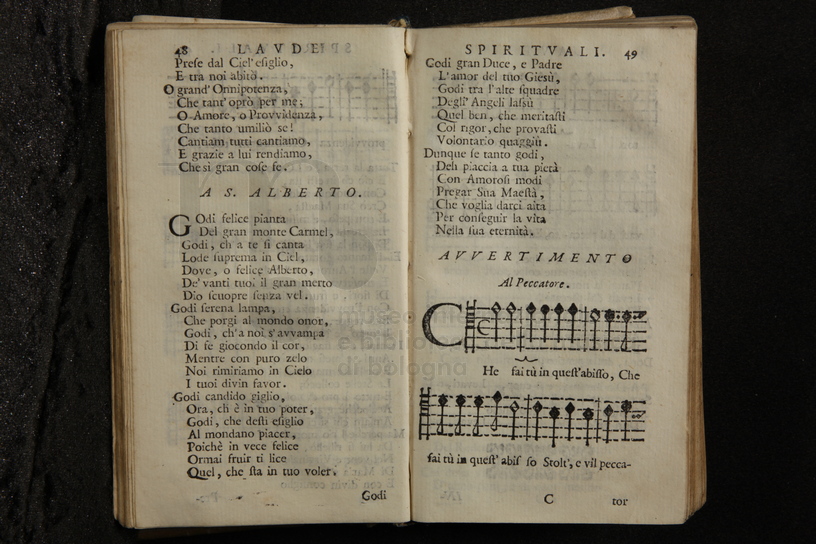 48 LAVDE
Prese dal Ciel' esiglio,
E tra noi abitò.
O grand' Onnipotenza,
Che tant' oprò per me;
O Amore, o Provvidenza,
Che tanto umiliò se!
Cantiam tutti cantiamo,
E grazie a lui rendiamo,
Che si gran cose fe.
A S. ALBERTO.
GOdi felice pianta
Del gran monte Carmel,
Godi, ch a te si canta
Lode suprema in Ciel,
Dove, o felice Alberto,
De' vanti tuoi il gran merto
Dio scuopre senza vel.
Godi serena lampa,
Che porgi al mondo onor,
Godi, ch'a noi s'avvampa
Di se giocondo il cor,
Mentre con puro zelo
Noi rimiriamo in Cielo
I tuoi divin favor.
Godi candido giglio,
Ora, ch è in tuo poter,
Godi, che desti esiglio
Al mondano piacer,
Poichè in vece felice
Ormai fruir ti lice
Quel, che sta in tuo voler.
Godi
SPIRITVALI. 49
Godi gran Duce, e Padre
L'amor del tuo Giesù,
Godi tra l'alte squadre
Degl' Angeli lassù
Quel ben, che meritasti
Col rigor, che provasti
Volontario quaggiù.
Dunque se tanto godi,
Deh piaccia a tua pietà
Con Amorosi modi
Pregar Sua Maestà,
Che voglia darci aita
Per conseguir la vita
Nella sua eternità.
AVVERTIMENTO
Al Peccatore.
CHe fai tù in quest'abisso, Che
fai tù in quest' abis so Stolt', e vil pecca-
C tor
museo inte
e bibliote
di bologna